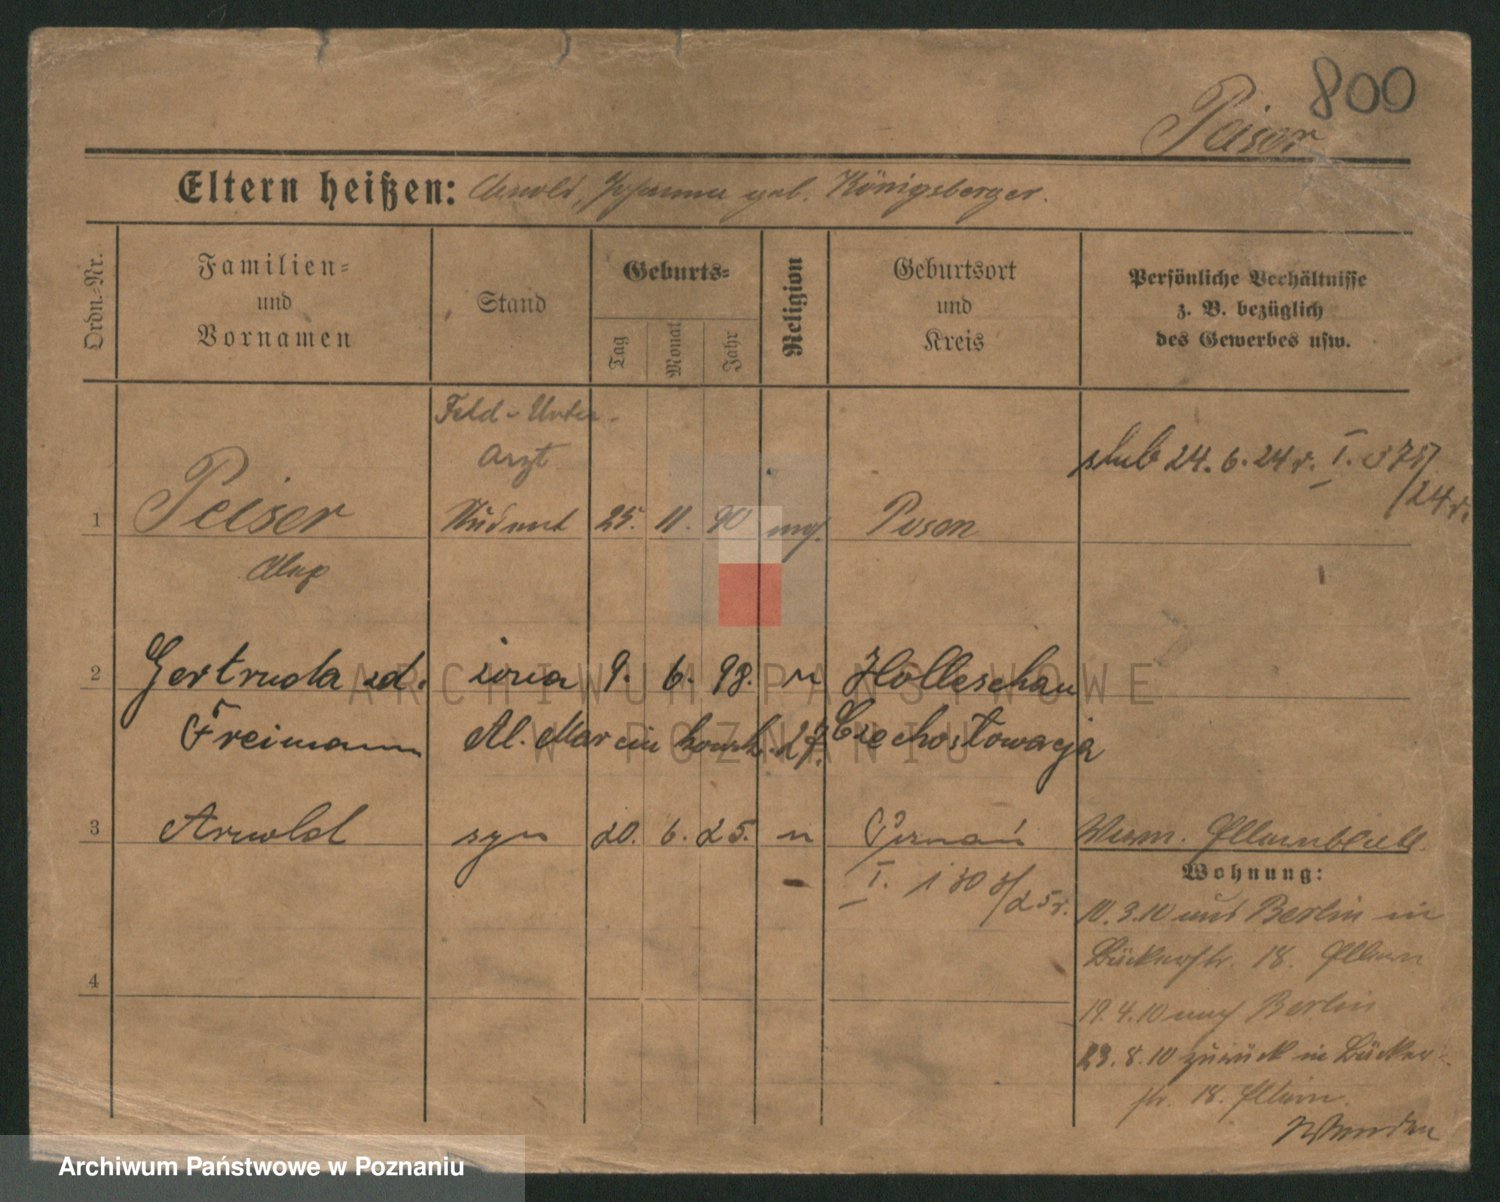 800
Peiser
Eltern heißen: Arnold, Johanna geb. Königsberger.
Ordn.-Nr.
Familien-
und
Vornamen
Stand
Geburts-
Tag
Monat
Jahr
Religion
Geburtsort
und
Kreis
Persönliche Verhältnisse
z. B. bezüglich
des Gewerbes usw.
Feld-Unter-
arzt
ślub 24.6.24 r. I.
/24 r.
1 Peiser Student 25. 11. 90 Posen
2 Gertruda zd. żona 9. 6. 98. Holleschau
Freimann Al. Marcinkowsk. 27. Czechosłowacja
3 Arnold syn 20. 6. 25. Poznań
I. 130
/25 r.
Wohnung:
10.3.10 aus Berlin in
Bäckerstr. 18. Eltern
4
19.4.10 nach Berlin
23.8.10 zurück in Bäcker-
str. 18. Eltern.
Wenden
ARCHIWUM PAŃSTWOWE
W POZNANIU
Archiwum Państwowe w Poznaniu